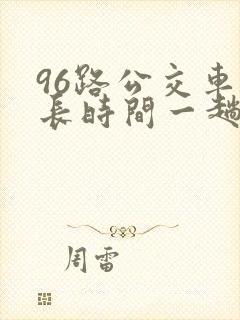 96路公交車
長時間一趟
周雷